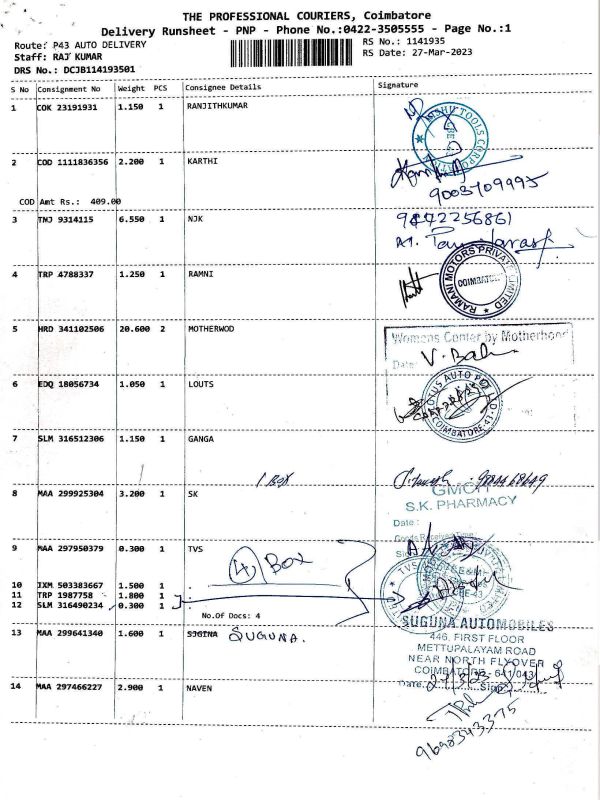 THE PROFESSIONAL COURIERS, Coimbatore
Delivery Runsheet - PNP - Phone No.:0422-3505555 - Page No.:1
Route: P43 AUTO DELIVERY
RS No.: 1141935
Staff: RAJ KUMAR
RS Date: 27-Mar-2023
DRS No.: DCJB114193501
S No Consignment No Weight PCS Consignee Details Signature
1 COK 23191931 1.150 1 RANJITHKUMAR
2 COD 1111836356 2.200 1 KARTHI
9003709995
COD Amt Rs.: 409.00
3 TNJ 9314115 6.550 1 NJK
9442256861
4 TRP 4788337 1.250 1 RAMNI
RAMANI MOTORS PRIVATE LIMITED
COIMBATORE
5 HRD 341102506 20.600 2 MOTHERWOD
Womens Center by Motherhood
Date: V. Bal
6 EDQ 18056734 1.050 1 LOUTS
LOTUS AUTO
COIMBATORE-43
7 SLM 316512306 1.150 1 GANGA
1 BOX
8 MAA 299925304 3.200 1 SK
GMCH
S.K. PHARMACY
Date :
9 MAA 297950379 0.300 1 TVS
4 Box
10 IXM 503383667 1.500 1 .
11 TRP 1987758 1.800 1 .
12 SLM 316490234 0.300 1 .
No.Of Docs: 4
13 MAA 299641340 1.600 1 SUGINA SUGUNA.
SUGUNA AUTOMOBILES
446, FIRST FLOOR
METTUPALAYAM ROAD
NEAR NORTH FLYOVER
COIMBATORE - 641 043
Date: 27/3/23 Sign
14 MAA 297466227 2.900 1 NAVEN
9698343375